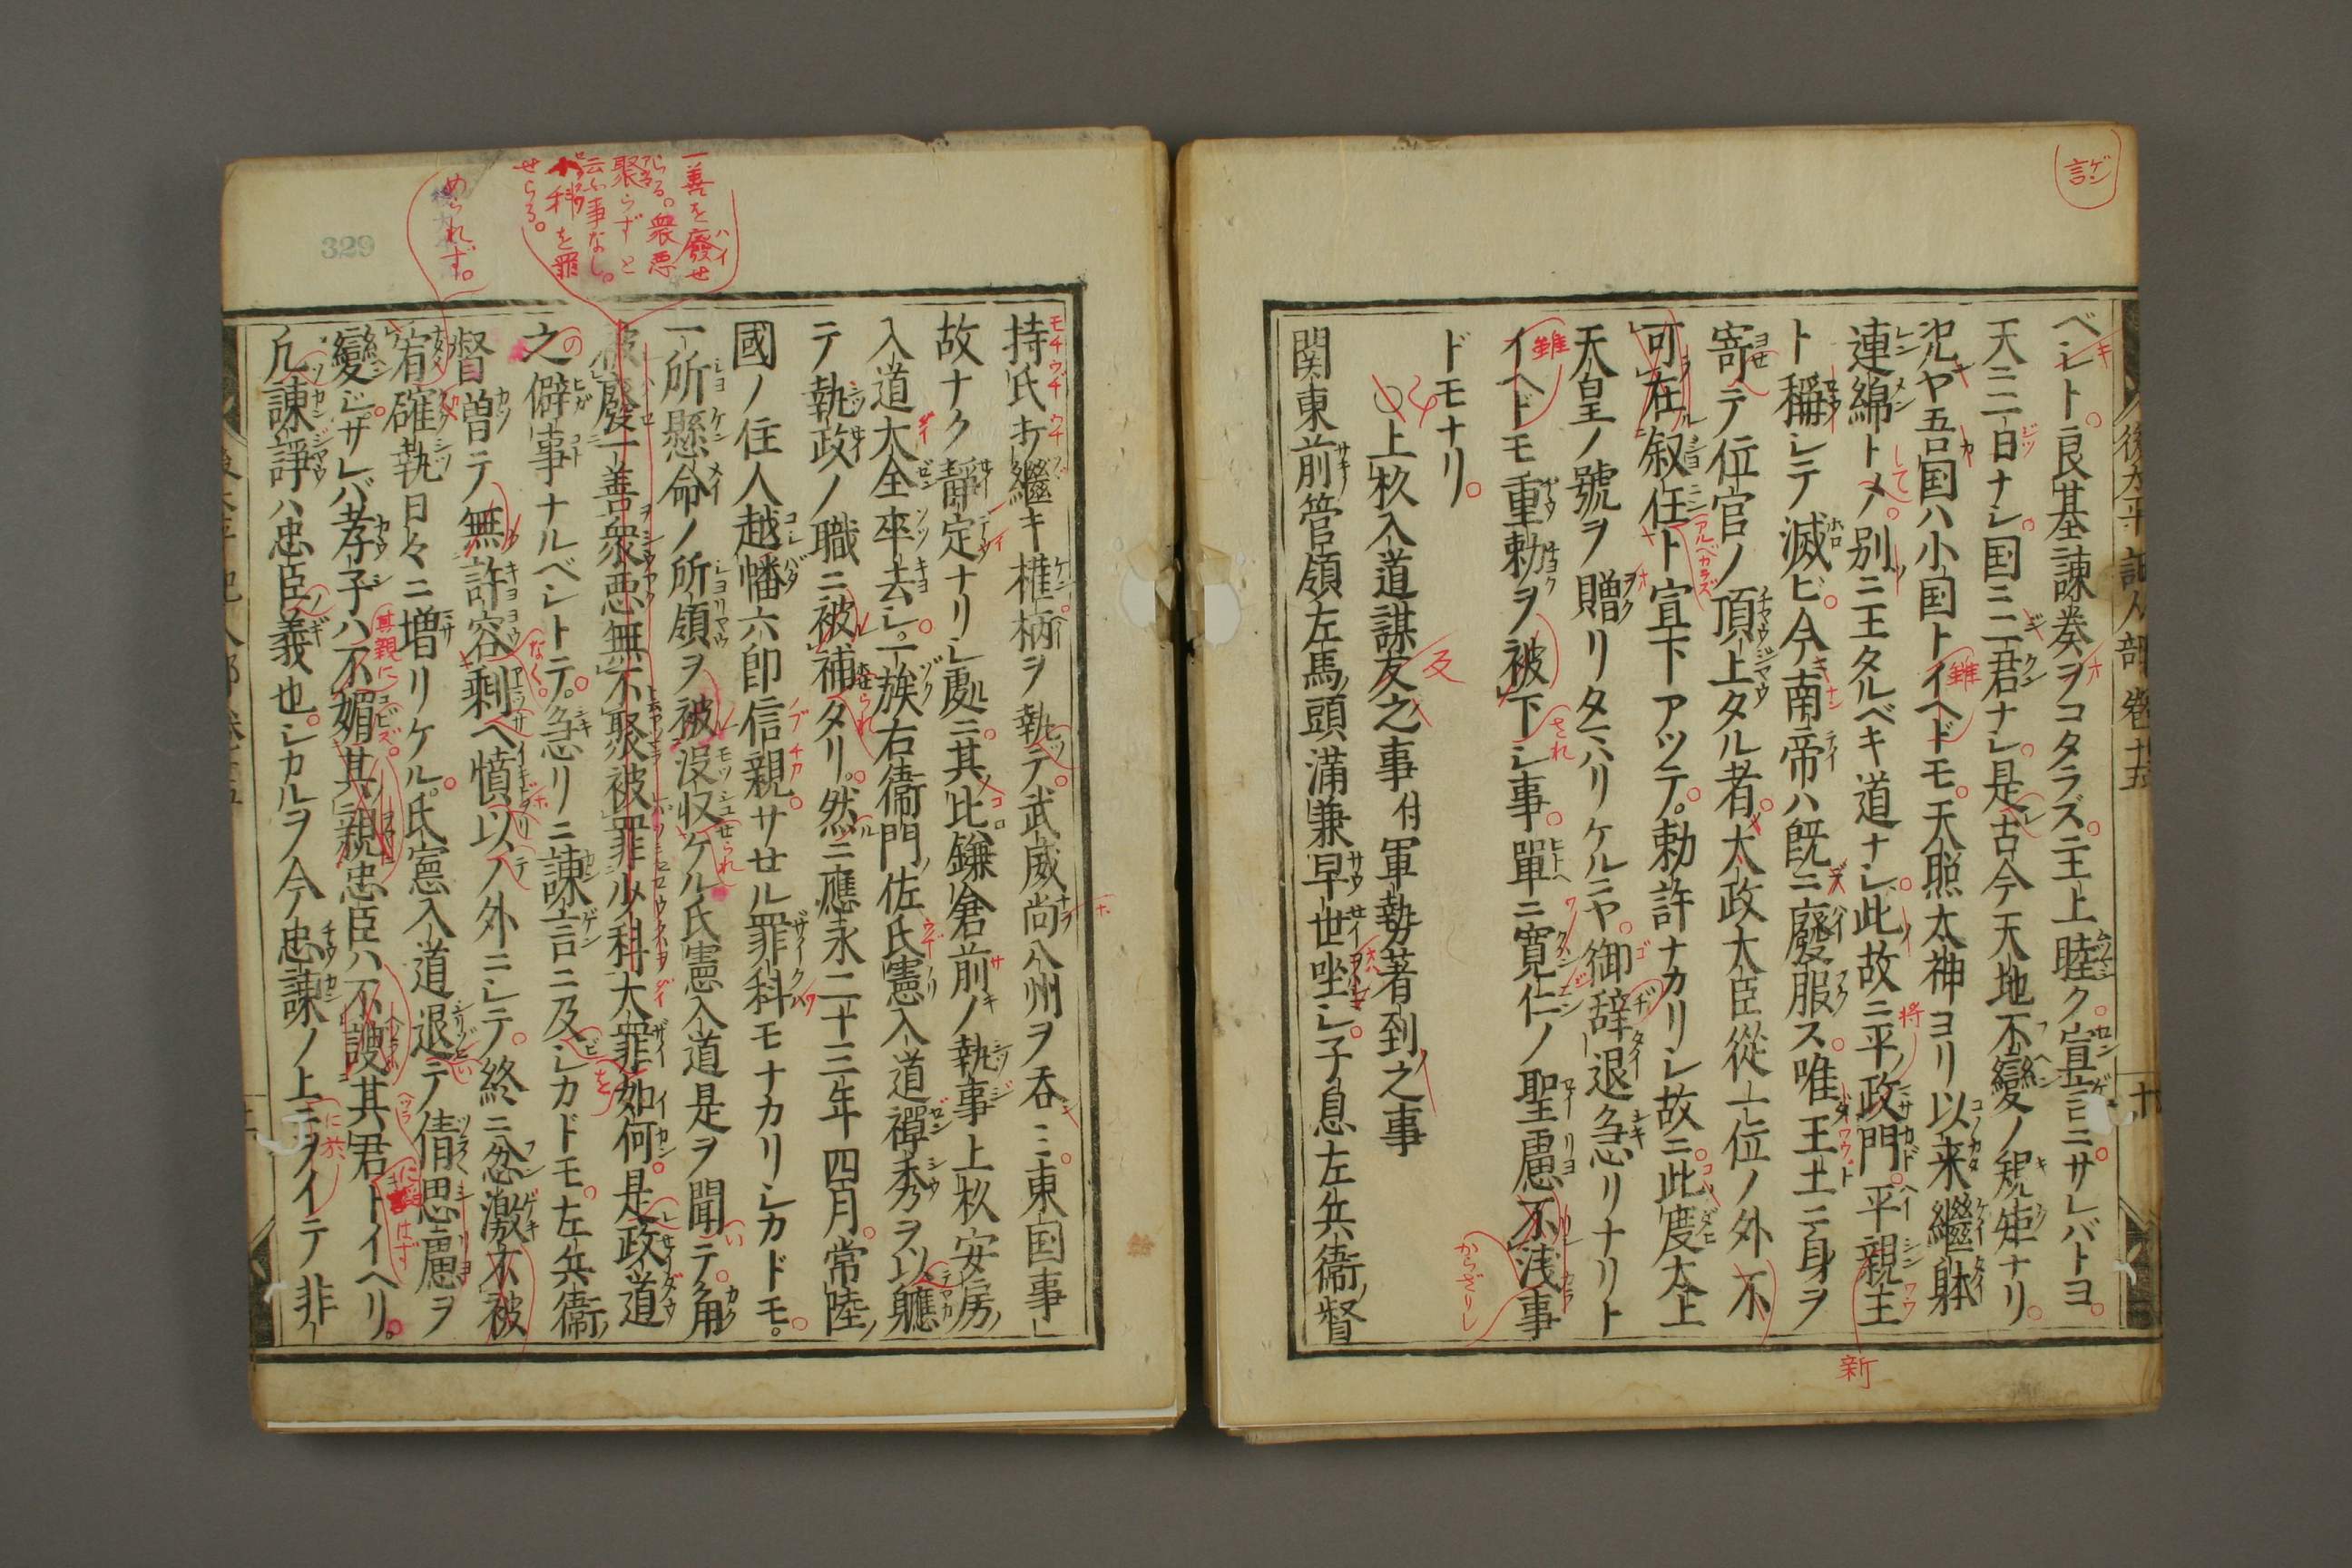 言
ゲン
ベシト良基諌奏ヲコタラズ主上睦ク宣言ニサレバトヨ
天ニ二日ナシ国ニ二君ナシ是古今天地不變ノ規矩ナリ
况ヤ吾国ハ小国トイヘドモ天照太神ヨリ以来繼躰
連綿トメ別ニ王タルベキ道ナシ此故ニ平政門平親王
ト稱シテ滅ビ今南帝ハ既ニ廢服ス唯王土ニ身ヲ
寄テ位官ノ頂上タル者太政大臣從一位ノ外不
可在叙任ト宣下アツテ勅許ナカリシ故ニ此度太上
天皇ノ號ヲ贈リタマハリケルニヤ御辞退急リナリト
イヘドモ重勅ヲ被下シ事單ニ寛仁ノ聖慮不浅事
ドモナリ
上杉入道謀友之事付軍勢著到之事
関東前管領左馬頭満兼早世坐シ子息左兵衞督
後太平記人部巻十五
十
新
からざりし
持氏於繼キ権柄ヲ執テ武威尚八州ヲ呑ミ東国事
故ナク靜定ナリシ處ニ其比鎌倉前ノ執事上杉安房
入道大全卒去シ一族右衞門佐氏憲入道禪秀ヲ以軈
テ執政ノ職ニ被補タリ然ニ應永二十三年四月常陸
國ノ住人越幡六郎信親サセル罪科モナカリシカドモ
一所懸命ノ所領ヲ被没収ケル氏憲入道是ヲ聞テ角
被廢一善衆悪無不聚被罪少科大罪如何是政道
之僻事ナルベシトテ急リニ諌言ニ及シカドモ左兵衞
督曽テ無許容剰ヘ憤以ノ外ニシテ終ニ忿激不被
宥確執日々ニ増リケル氏憲入道退テ倩思慮ヲ
變ジサレバ孝子ハ不媚其親忠臣ハ不諛其君トイヘリ
凡諌諍ハ忠臣義也シカルヲ今忠諌ノ上ニヲイテ非
一善を廢せ
らる。衆悪
聚らずと
云ふ事なし。
小科を罪
せらる。
められず。
329